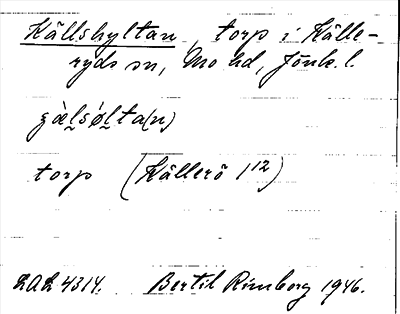 Källshyltan, torp i Källe-
ryds sn, Mo hd, Jönk. l.
gä̀lsø̀lta(n)
torp (Källerö 1¹²)
LAL 4314. Bertil Rimborg 1946.